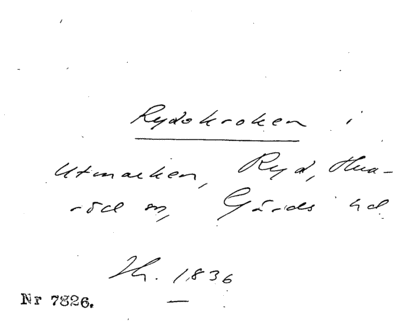 Rydskroken i
Utmarken, Ryd, Hua-
röd sn, Gärds hd
Lh. 1836
Nr 7326.